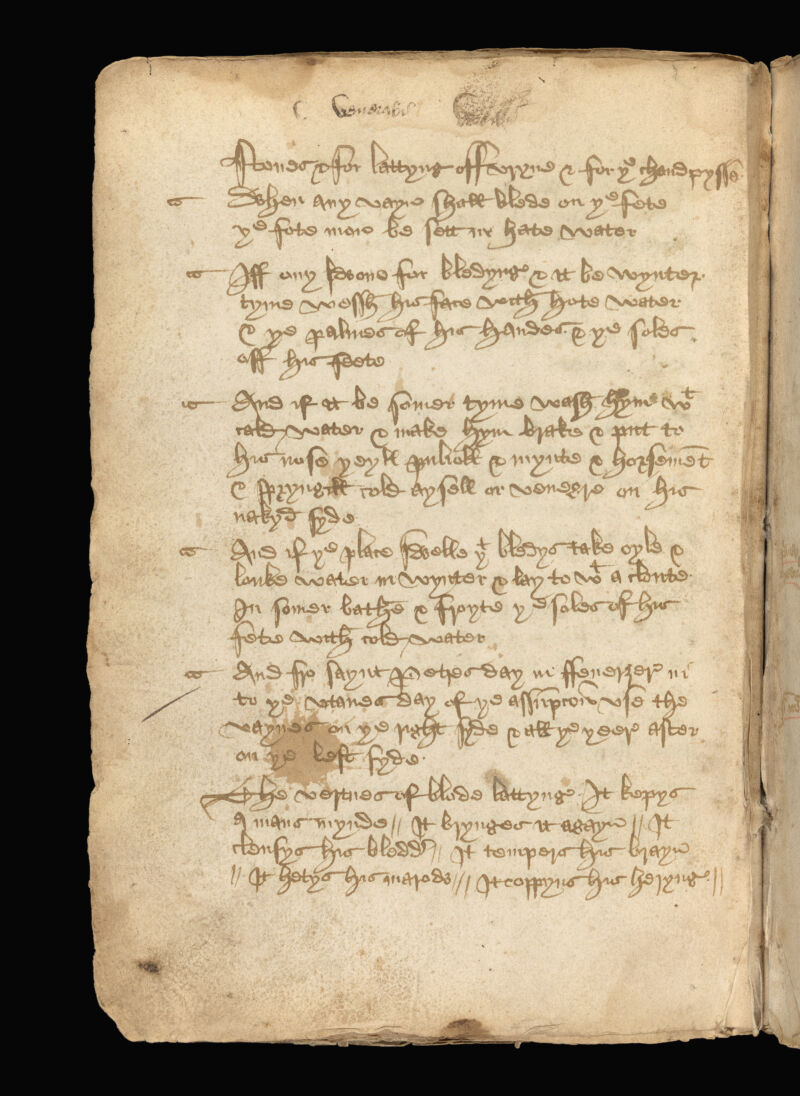 venerabil
Stones & for lattyng off vryne & for yᵉ chaud pysse
When any vayn shall blede on yᵉ fete
yᵉ fote mon be sett in hate water
Iff ony swone for bledyng & it be wynter
tyme wessh his face with hote water
& ye palmes of his handes & ye soles
off his feete
And if it be somer tyme wash hym wᵗ
cald water & make hym brake & putt to
his nose yeyll pulioll & mynte & horsement
& spryngill cold aysell or venegre on his
nakyd syde
And if yᵉ place swelle yᵗ bledys take oyle &
louke water in wynter & lay to wᵗ a cloute
In somer bathe & froyte yᵉ soles of his
fete with cold water
And fro saynt Petres day in ffeuerȝer in
to ye vtaues day of ye assumpcon vse the
vaynes on ye right syde & all ye yeer after
on ye left syde
The vertues of blode lattyng It kepys
a mans mynde // It brynges it agayn // It
clensys his bledder // It tempers his brayn
// It hetys his marods /// It coppyns his heryng //